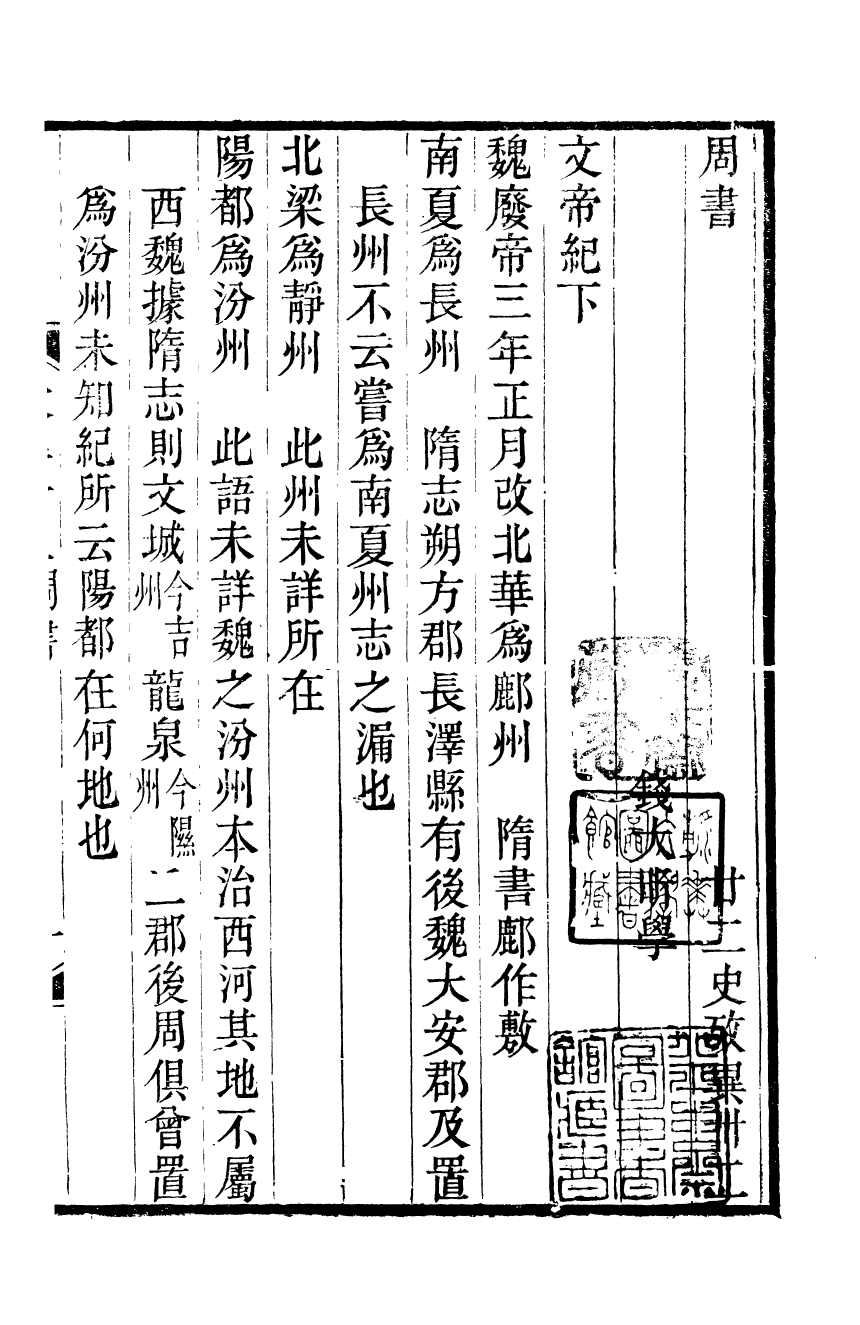 周書　廿二史攷異卅二
錢大昕學
文帝紀下
魏廢帝三年正月改北華爲鄜州　隋書鄜作敷
南夏爲長州　隋志朔方郡長澤縣有後魏大安郡及置
長州不云嘗爲南夏州志之漏也
北梁爲靜州　此州未詳所在
陽都爲汾州　此語未詳魏之汾州本治西河其地不屬
西魏據隋志則文城今吉州龍泉今隰州二郡後周俱曾置
爲汾州未知紀所云陽都在何地也